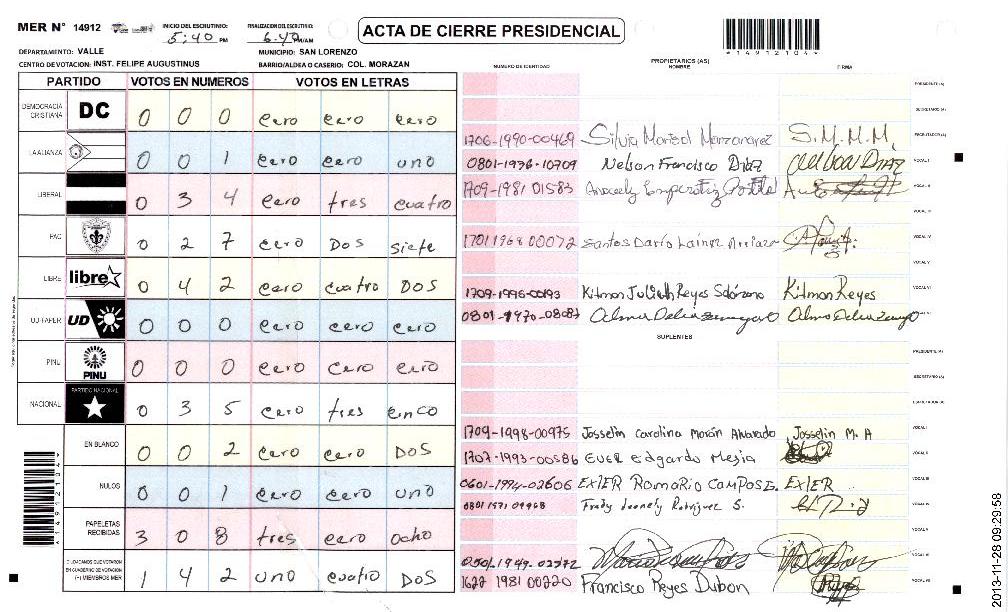 MER N° 14912 INICIO DEL ESCRUTINIO: 5:40 PM FINALIZACION DEL ESCRUTINIO:
ACTA DE CIERRE PRESIDENCIAL
*14912104*
DEPARTAMENTO: VALLE MUNICIPIO: SAN LORENZO
CENTRO DE VOTACION: INST. FELIPE AUGUSTINUS BARRIO/ALDEA O CASERIO: COL. MORAZAN
PARTIDO VOTOS EN NUMEROS VOTOS EN LETRAS
DEMOCRACIA CRISTIANA DC 0 0 0 cero cero cero
LA ALIANZA 0 0 1 cero cero uno
LIBERAL 0 3 4 cero tres cuatro
PAC 0 2 7 cero DOS siete
LIBRE libre 0 4 2 cero cuatro DOS
UD FAPER UD 0 0 0 cero cero cero
PINU PINU 0 0 0 cero cero cero
NACIONAL PARTIDO NACIONAL 0 3 5 cero tres cinco
EN BLANCO 0 0 2 cero cero DOS
NULOS 0 0 1 cero cero uno
PAPELETAS RECIBIDAS 3 0 8 tres cero ocho
CIUDADANOS QUE VOTARON EN CUADERNO DE VOTACION (+) MIEMBROS MER 1 4 2 uno cuatro DOS
*14912104*
NUMERO DE IDENTIDAD PROPIETARIOS (AS) NOMBRE FIRMA
PRESIDENTE (A)
SECRETARIO (A)
1706-1990-00469 Silvia Marisol Manzanarez S.M.M.M. ESCRUTADOR (A)
0801-1936-10709 Nelson Francisco Diaz VOCAL I
1709-1981 01583 VOCAL II
VOCAL III
1701 1968 00072 Santos Darío Laínez VOCAL IV
VOCAL V
1709-1996-00193 Kitman Julieth Reyes Kitman Reyes VOCAL VI
0801-1970-08087
SUPLENTES
PRESIDENTE (A)
SECRETARIO (A)
ESCRUTADOR (A)
1709-1998-00975 Josselin Carolina Morán Alvarado Josselin M. A VOCAL I
1707-1993-00586 EVER Edgardo Mejia VOCAL II
0601-1994-02606 EXIER ROMARIO CAMPOS E. EXIER VOCAL III
0801 1571 09968 Fredy Leonely Rodriguez S. VOCAL IV
VOCAL V
VOCAL VI
1622 1981 00220 Francisco Reyes Dubon VOCAL VII
2013-11-28 09:29:58